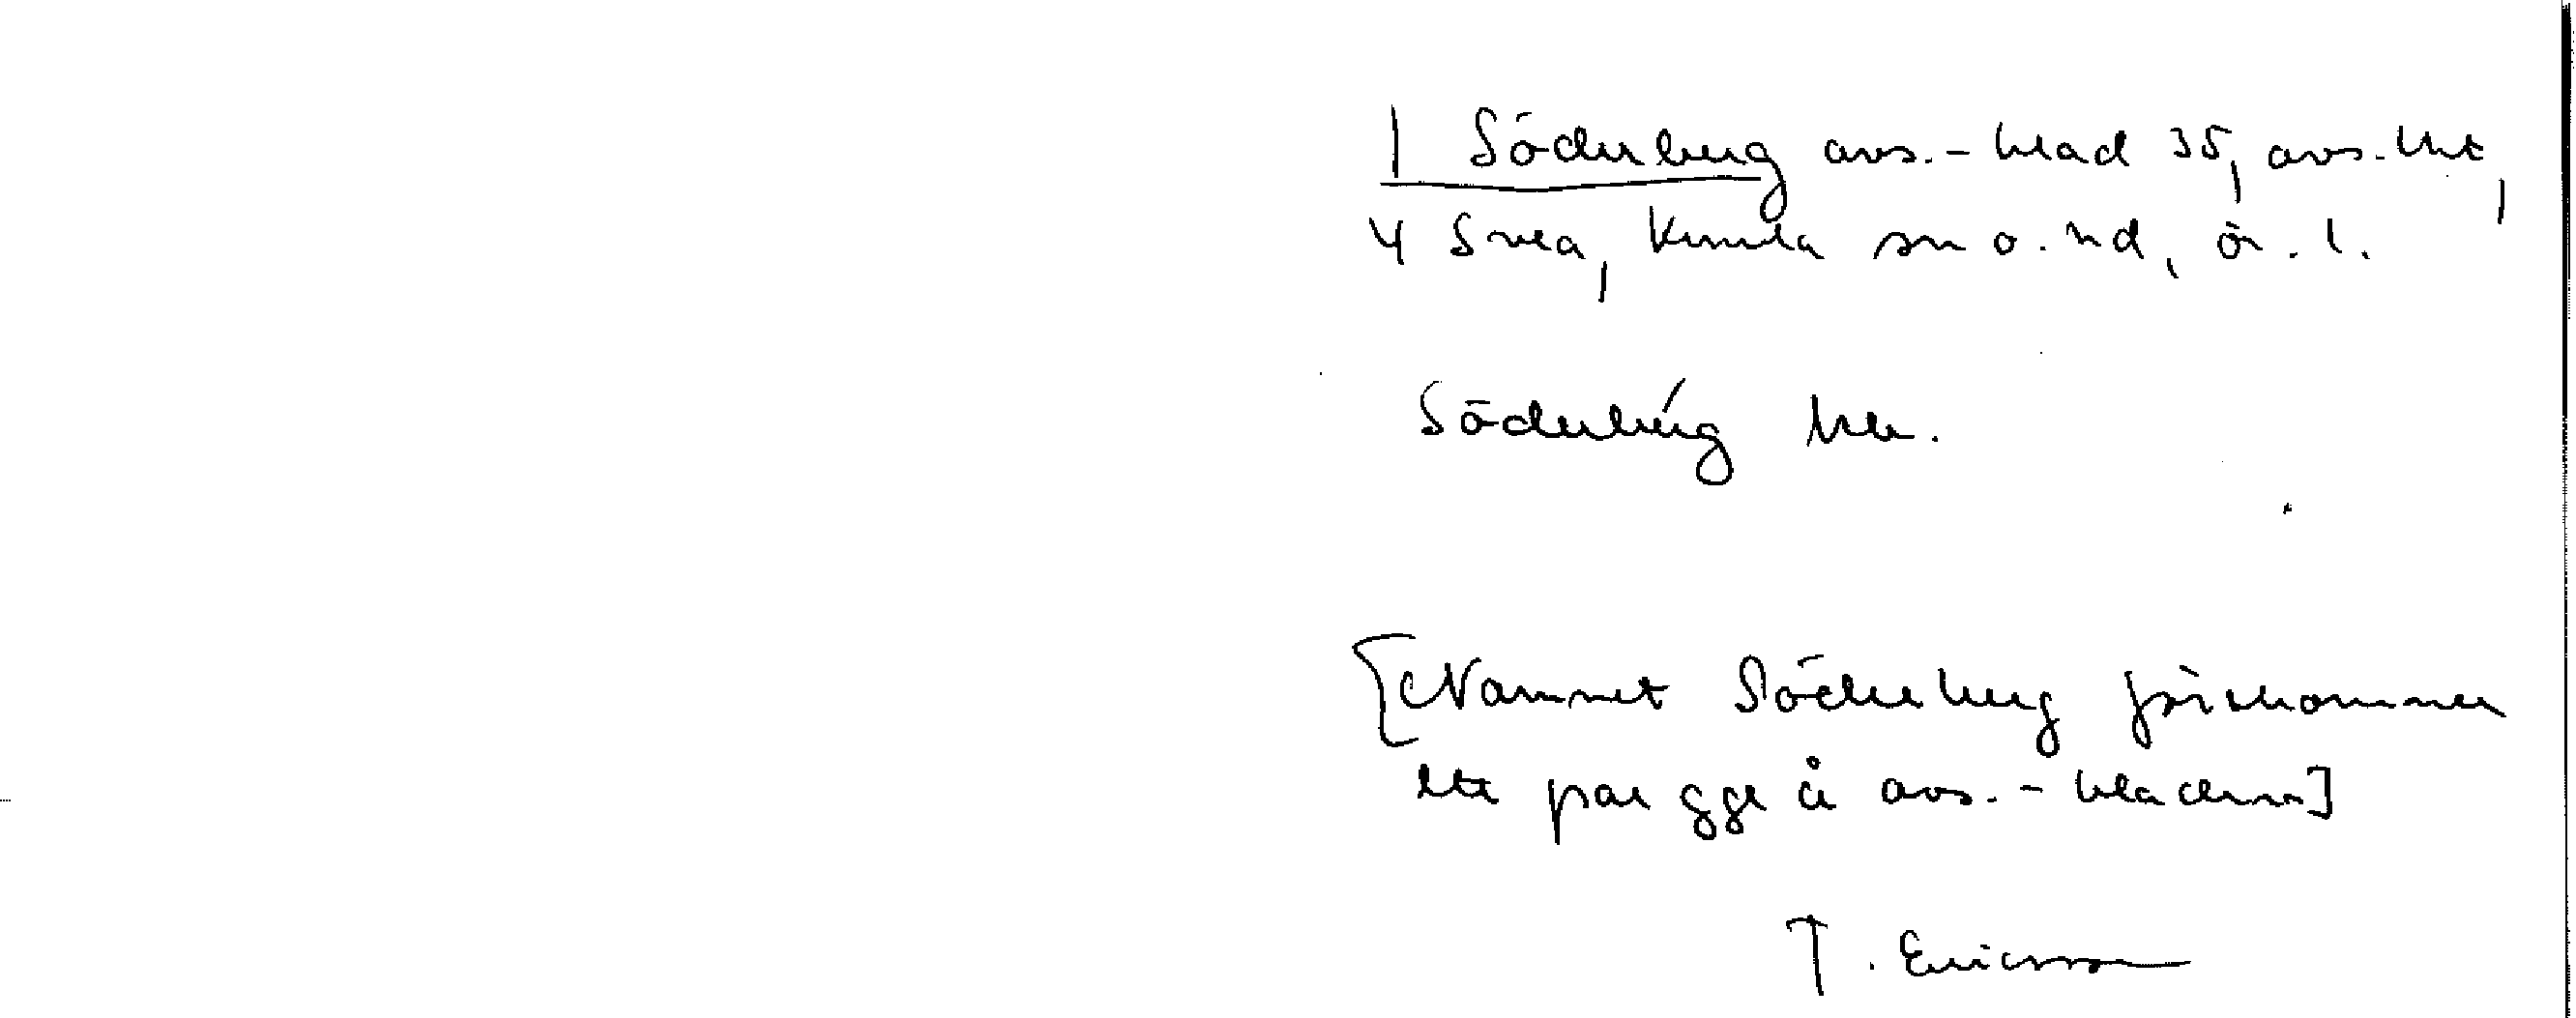 1 Söderberg avs.-blad 35, avs.-litt,
4 Svea, Kumla sn o. hd, ör. l.
Söderberg
[Namnet Söderberg förekommer
ett par ggr å avs.-bladen]
T. Ericsson